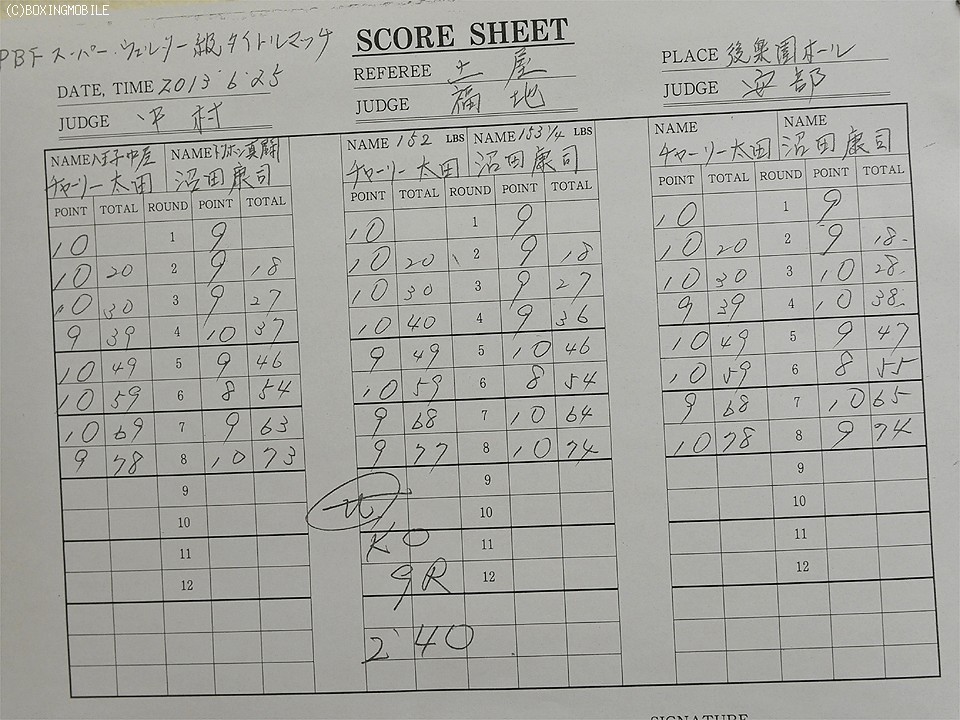 (C)BOXINGMOBILE
PBF スーパーウェルター級タイトルマッチ
SCORE SHEET
DATE, TIME 2013.6.25
REFEREE 土屋
PLACE 後楽園ホール
JUDGE 中村
JUDGE 福地
JUDGE 安部
NAME 八王子中屋 NAME トリボン真闘 NAME 152 LBS NAME 153 1/4 LBS NAME NAME
チャーリー太田 沼田康司 チャーリー太田 沼田康司 チャーリー太田 沼田康司
POINT TOTAL ROUND POINT TOTAL POINT TOTAL ROUND POINT TOTAL POINT TOTAL ROUND POINT TOTAL
10 1 9 10 1 9 10 1 9
10 20 2 9 18 10 20 2 9 18 10 20 2 9 18
10 30 3 9 27 10 30 3 9 27 10 30 3 10 28
9 39 4 10 37 10 40 4 9 36 9 39 4 10 38
10 49 5 9 46 9 49 5 10 46 10 49 5 9 47
10 59 6 8 54 10 59 6 8 54 10 59 6 8 55
10 69 7 9 63 9 68 7 10 64 9 68 7 10 65
9 78 8 10 73 9 77 8 10 74 10 78 8 9 74
9 9 9
10 10 10
11 KO 11 11
12 9R 12 12
2'40